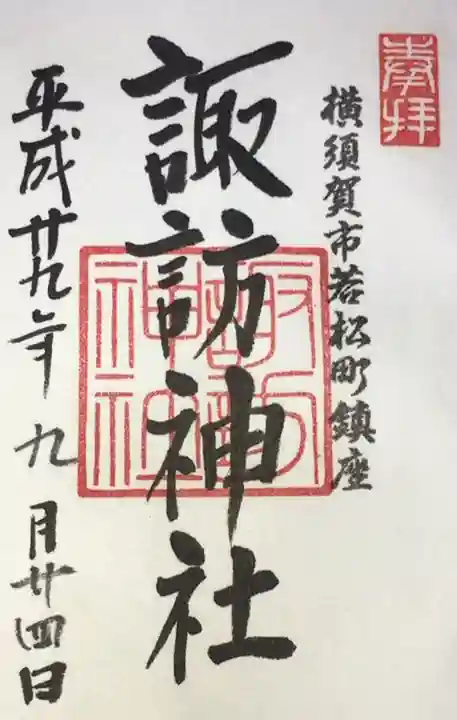 奉拝
横須賀市若松町鎮座
諏訪神社
諏訪
神社
平成廿九年九月廿四日